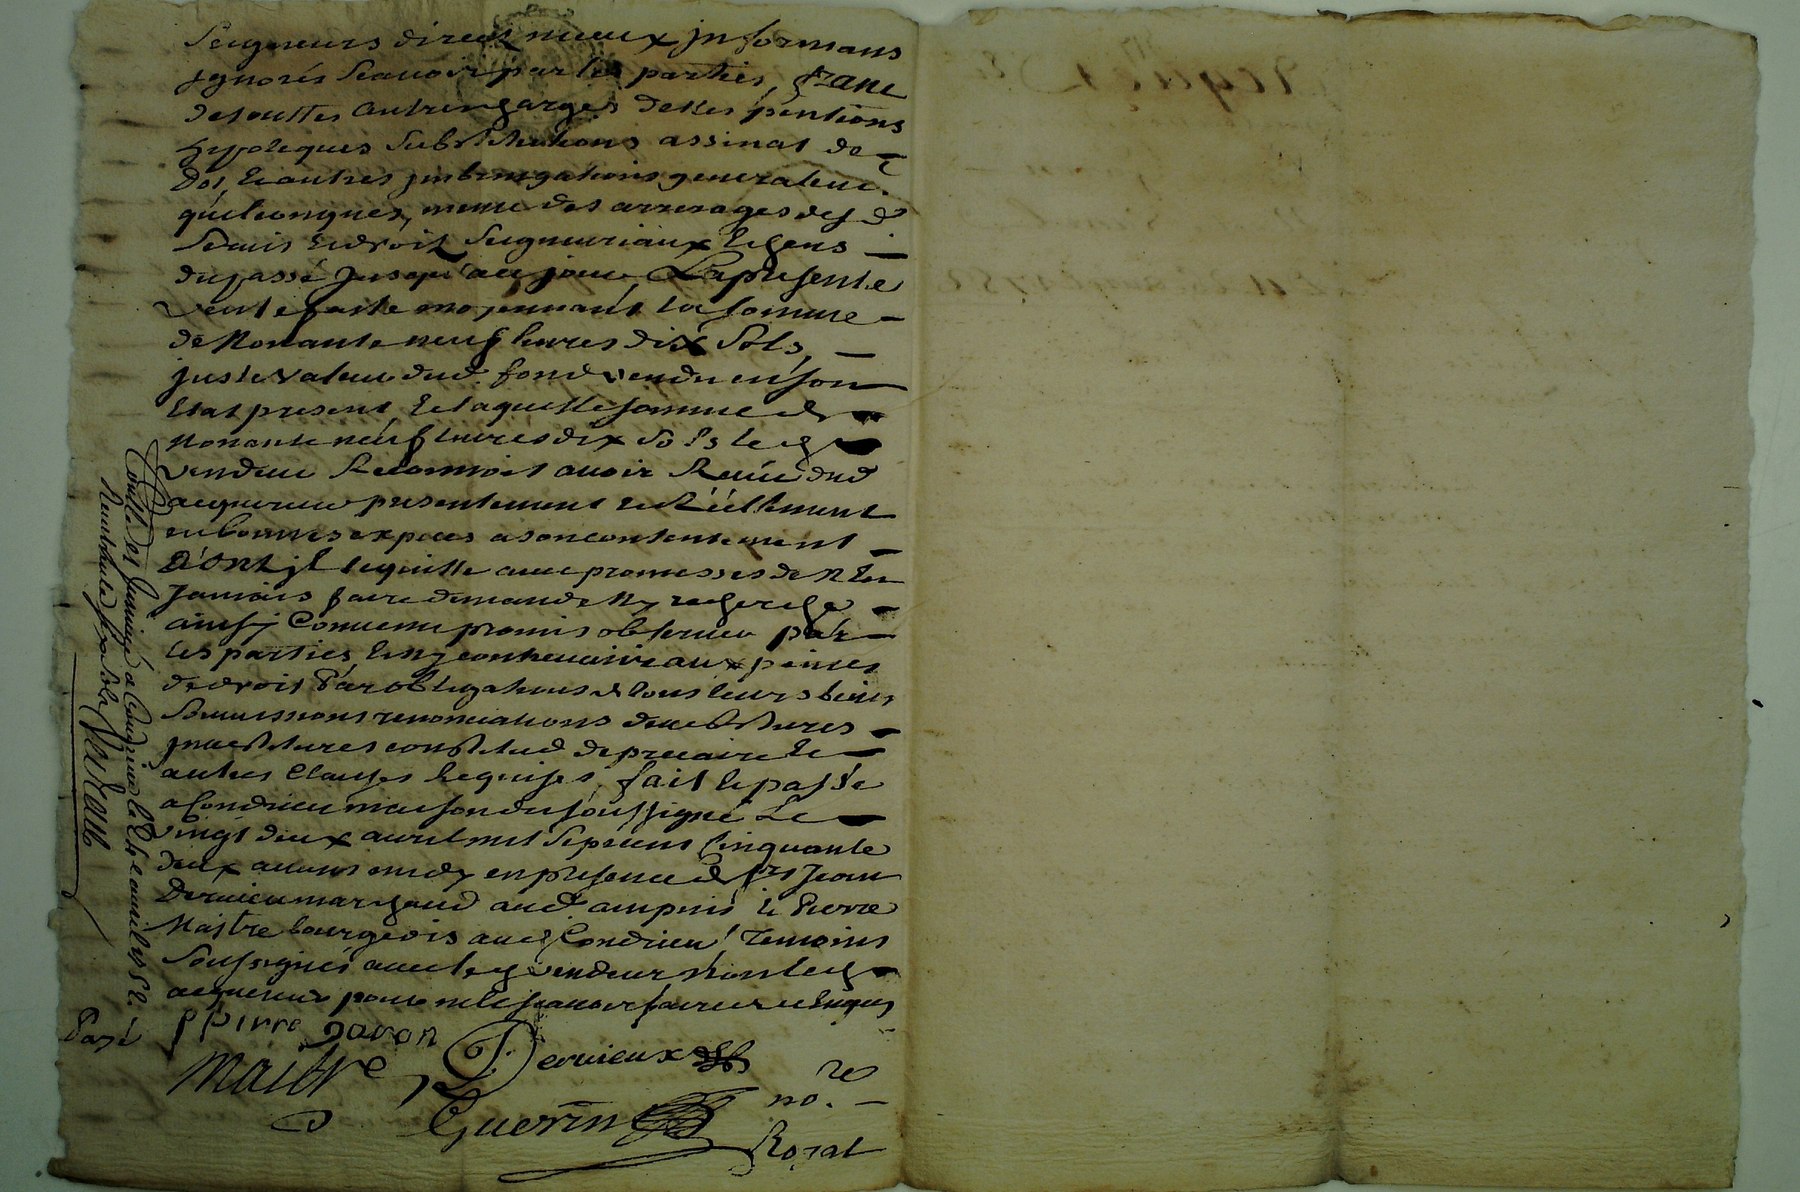 Seigneurs direct mieux jnformans
jgnorés Scauoir par les parties, franc
de touttes autres charges dettes pentions
hypoteques Substitutions assinat de
Dot, Et autres jmbringations generalem.t
quelconques, meme des arrerages desd
Seruis Et droit Seigneuriaux Echeus
du passé Jusqu'au jour, La presente
Vente faite moyennant la somme
de Nonante neuf liures dix Sols,
juste Valeur dud. fond vendu en son
Etat present, Et laquelle somme de
Nonante neuf liures dix Sols led
Vendeur Reconnoit auoir Reçue dud
acquereur presentement Et Réèllement
en bonnes expeces a son contentement
D'ont jl le quitte auec promesses de n'En
Jamais faire demande Ny recherche
ainsy Conuenu promis obseruer par
les parties, Et ny contreuenir aux peines
de droit Par obligations de tous leurs biens
Soumissions renonciations deuestitures
jnuestitures constitué de precaire Et
autres Clauses Requises, fait Et passé
a Condrieu maison du soussigné Le
Vingt deux auril mil Sept cens Cinquante
deux auant midy en presence de srs Jean
Deruieu marchand aud ampuis Et Pierre
Maistre bourgeois aud Condrieu Temoins
Soussignés auec led vendeur Non led
acquereur pour ne le scauoir faire de ce Enquis
P Pierre Davon
Maitre Deruieux
Guerin
no.re
Royal
Controllé Et Jnsinué a Condrieu le auril 1752.